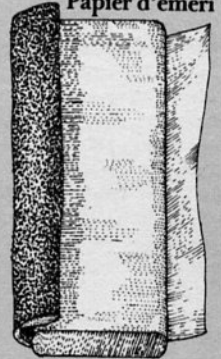 Papier d'émeri